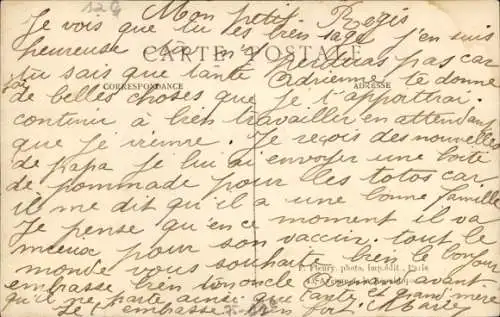 126
Mon petit Regis
Je vois que tu es bien sage j'en suis
heureuse
CARTE POSTALE
perdras pas car
tu sais que tante Adrienne te donne
CORRESPONDANCE
ADRESSE
de belles choses que je t'apporterai.
continue à bien travailler en attendant
que je vienne. Je reçois des nouvelles
de Papa je lui ai envoyer une boite
de pommade pour les totos car
il me dit qu'il a une bonne famille
Je pense qu'en ce moment il va
mieux pour son vaccin. tout le
monde vous souhaite bien le bonjour
P. Fleury, photo, imp. édit. - Paris
embrasse bien tononcle avant
qu'il ne parte ainsi que tante et grand'mère
Je t'embrasse bien fort.